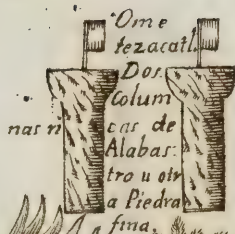 Ome
tezacatl.
Dos
Colum
nas ri cas de
Alabas:
tro u otr
a Piedra
fina.